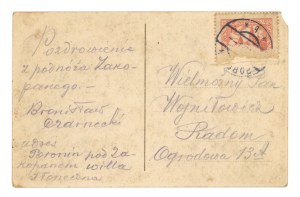 Pozdrowienia
z podnóża Zako-
panego –
Bronisław
Czarnecki
adres
Poronin pod Za-
kopanem willa
Słoneczna
Wielmożny Pan
Radom
Ogrodowa 13A